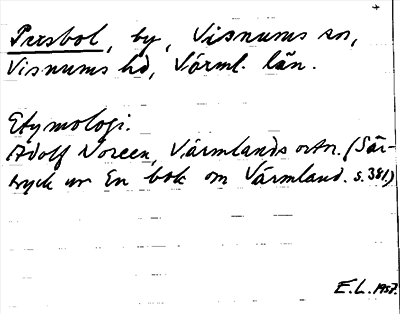 Presbol, by, Visnums sn,
Visnums hd, Värml. län.
Etymologi.
Adolf Noreen, Värmlands ortn. (Sär-
tryck ur En bok om Värmland. s. 381)
E. L. 1957.